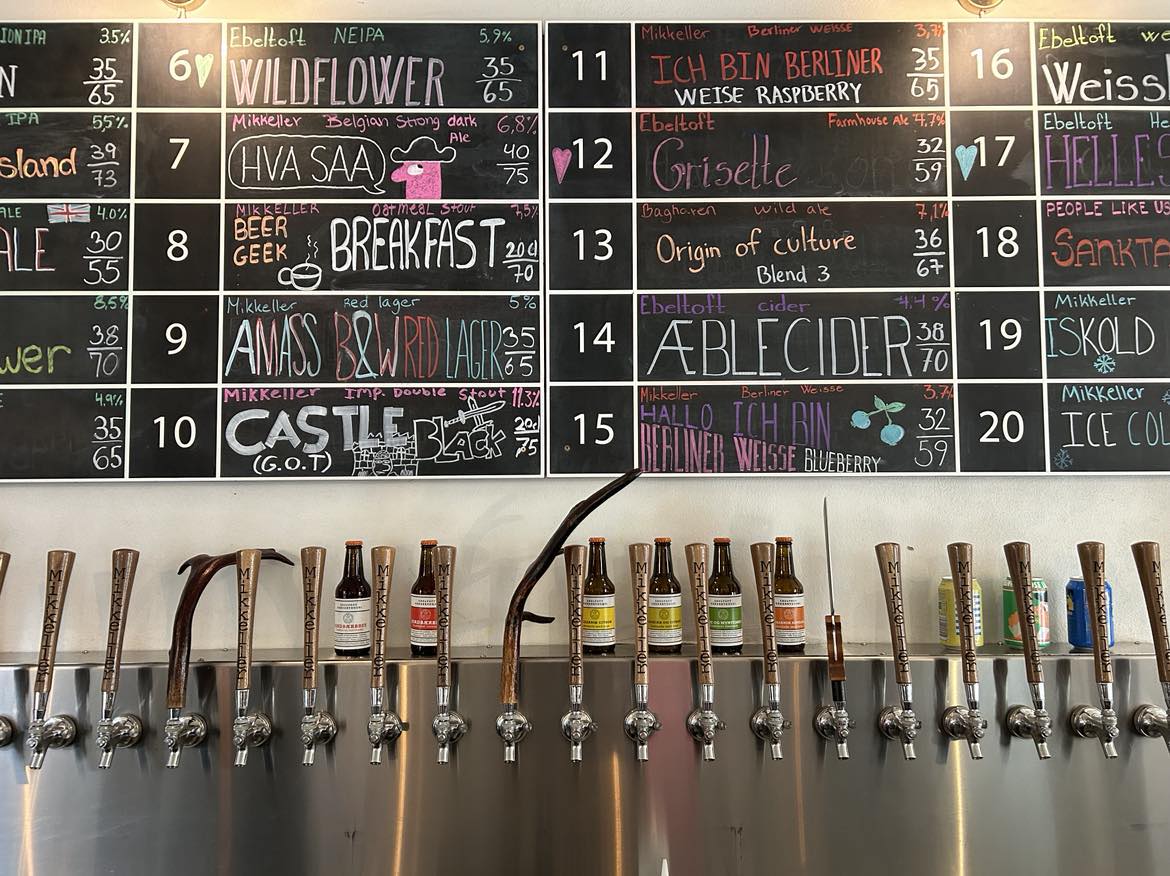 ION IPA 3.5%
N 35
65
IPA 5,5%
sland 39
73
ALE 4.0%
ALE 30
55
8,5%
wer 38
70
E 4.9%
35
65
6 Ebeltoft NEIPA 5,9%
WILDFLOWER 35
65
7 Mikkeller Belgian Strong dark Ale 6,8%
HVA SAA 40
75
8 MIKKELLER Oatmeal Stout 7,5%
BEER GEEK BREAKFAST 20cl
70
9 Mikkeller Red lager 5%
AMASS B&W RED LAGER 35
65
10 Mikkeller Imp. Double Stout 11.3%
CASTLE BLACK 20cl
(G.O.T) 75
11 Mikkeller Berliner Weisse 3,7%
ICH BIN BERLINER 35
WEISE RASPBERRY 65
12 Ebeltoft Farmhouse Ale 4,7%
Grisette 32
59
13 Baghaven Wild ale 7,1%
Origin of culture 36
Blend 3 67
14 Ebeltoft cider 4,4%
ÆBLECIDER 38
70
15 Mikkeller Berliner Weisse 3.7%
HALLO ICH BIN 32
BERLINER WEISSE BLUEBERRY 59
16 Ebeltoft we
Weiss
17 Ebeltoft He
HELLES
18 PEOPLE LIKE US
SANKTA
19 Mikkeller
ISKOLD
20 Mikkeller
ICE COL
MIKKELLER
MIKKELLER
MIKKELLER
MIKKELLER
MIKKELLER
MIKKELLER
MIKKELLER
MIKKELLER
MIKKELLER
MIKKELLER
MIKKELLER
MIKKELLER
MIKKELLER
MIKKELLER